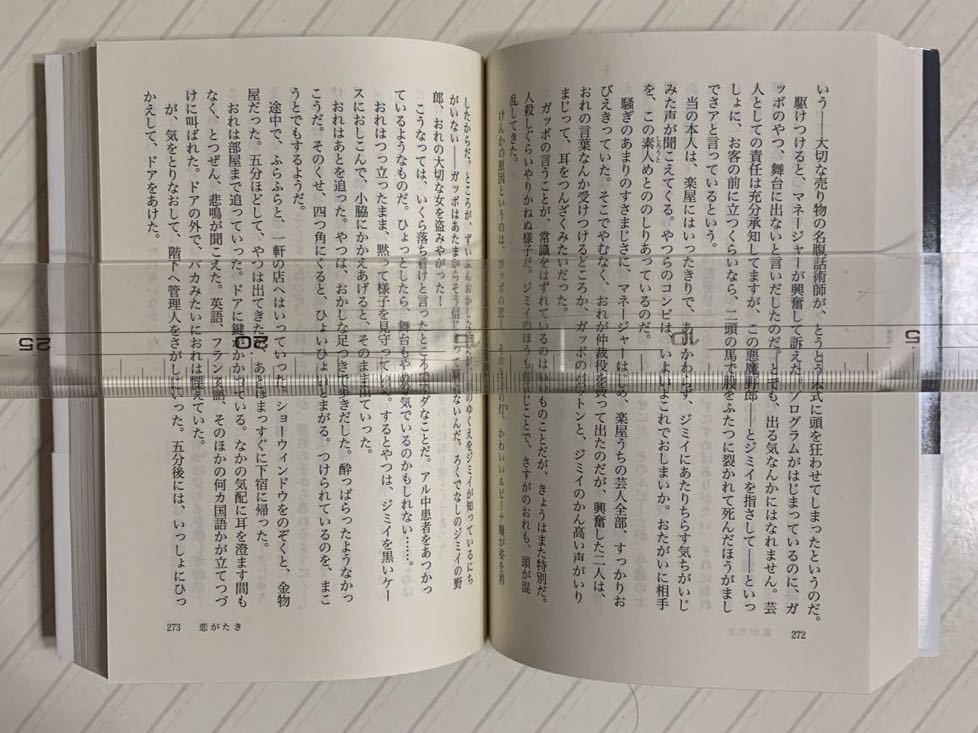 いう――大切な売り物の名腹話術師が、とうとう本式に頭を狂わせてしまったというのだ。
駆けつけると、マネージャーが興奮して訴えた。プログラムがはじまっているのに、ガ
ッポのやつ、舞台に出ないと言いだしたのだ。とても、出る気なんかにはなれません。芸
人としての責任は充分承知してますが、この悪魔野郎――とジミイを指さして――といっ
しょに、お客の前に立つくらいなら、二頭の馬で股をふたつに裂かれて死んだほうがまし
でさアと言っているという。
当の本人は、楽屋にはいったきりで、あいかわらず、ジミイにあたりちらす気ちがいじ
みた声が聞こえてくる。やつらのコンビは、いよいよこれでおしまいか。おたがいに相手
を、この素人めとののしりあっているのだ。
しろうと
騒ぎのあまりのすさまじさに、マネージャーはじめ、楽屋うちの芸人全部、すっかりお
びえきっていた。そこでやむなく、おれが仲裁役を買って出たのだが、興奮した二人は、
おれの言葉なんか受けつけるどころか、ガッポの
と、ジミイのかん高い声がいり
まじって、耳をつんざくみたいだった。
ガッポの言うことが、常識をはずれているのはいつものことだが、きょうはまた特別だ。
人殺しぐらいやりかねぬ様子だ。ジミイのほうも
じことで、さすがのおれも、頭が混
乱してきた。
けんかの原因というのは、ガッポの恋人、
かわいいルビーナ嬢が姿を消
272
したからだ。ところが、ずいぶんおかしな
のゆくえをジミイが知っているにち
がいない――ガッポはあたまからそう信じ
ないんだ。ろくでなしのジミイの野
郎、おれの大切な女を盗みやがった！
こうなっては、いくら落ち着けと言ったところでムダなことだ。アル中患者をあつかっ
ているようなものだ。ひょっとしたら、舞台もやめる気でいるのかもしれない……。
おれはつっ立ったまま、黙って様子を見守っていた。するとやつは、ジミイを黒いケー
スにおしこんで、小脇にかかえあげると、そのまま出ていった。
おれはあとを追った。やつは、おかしな足つきで歩きだした。酔っぱらったようなかっ
こうだ。そのくせ、四つ角にくると、ひょいひょいとまがる。つけられているのを、まこ
うとでもするようだ。
途中で、ふらふらと、一軒の店へはいっていった。ショーウィンドウをのぞくと、金物
屋だった。五分ほどして、やつは出てきたが、あとはまっすぐに下宿に帰った。
おれは部屋まで追っていった。ドアに鍵がかかっている。なかの気配に耳を澄ます間も
なく、とつぜん、悲鳴が聞こえた。英語、フランス語、そのほかの何カ国語かが立てつづ
けに叫ばれた。ドアの外で、バカみたいにおれは慄えていた。
が、気をとりなおして、階下へ管理人をさがしにいった。五分後には、いっしょにひっ
かえして、ドアをあけた。
273 恋がたき
25
20
10
5